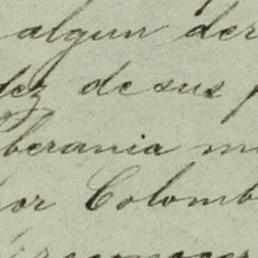 algun der
dez de sus p
berania m
or Colomb